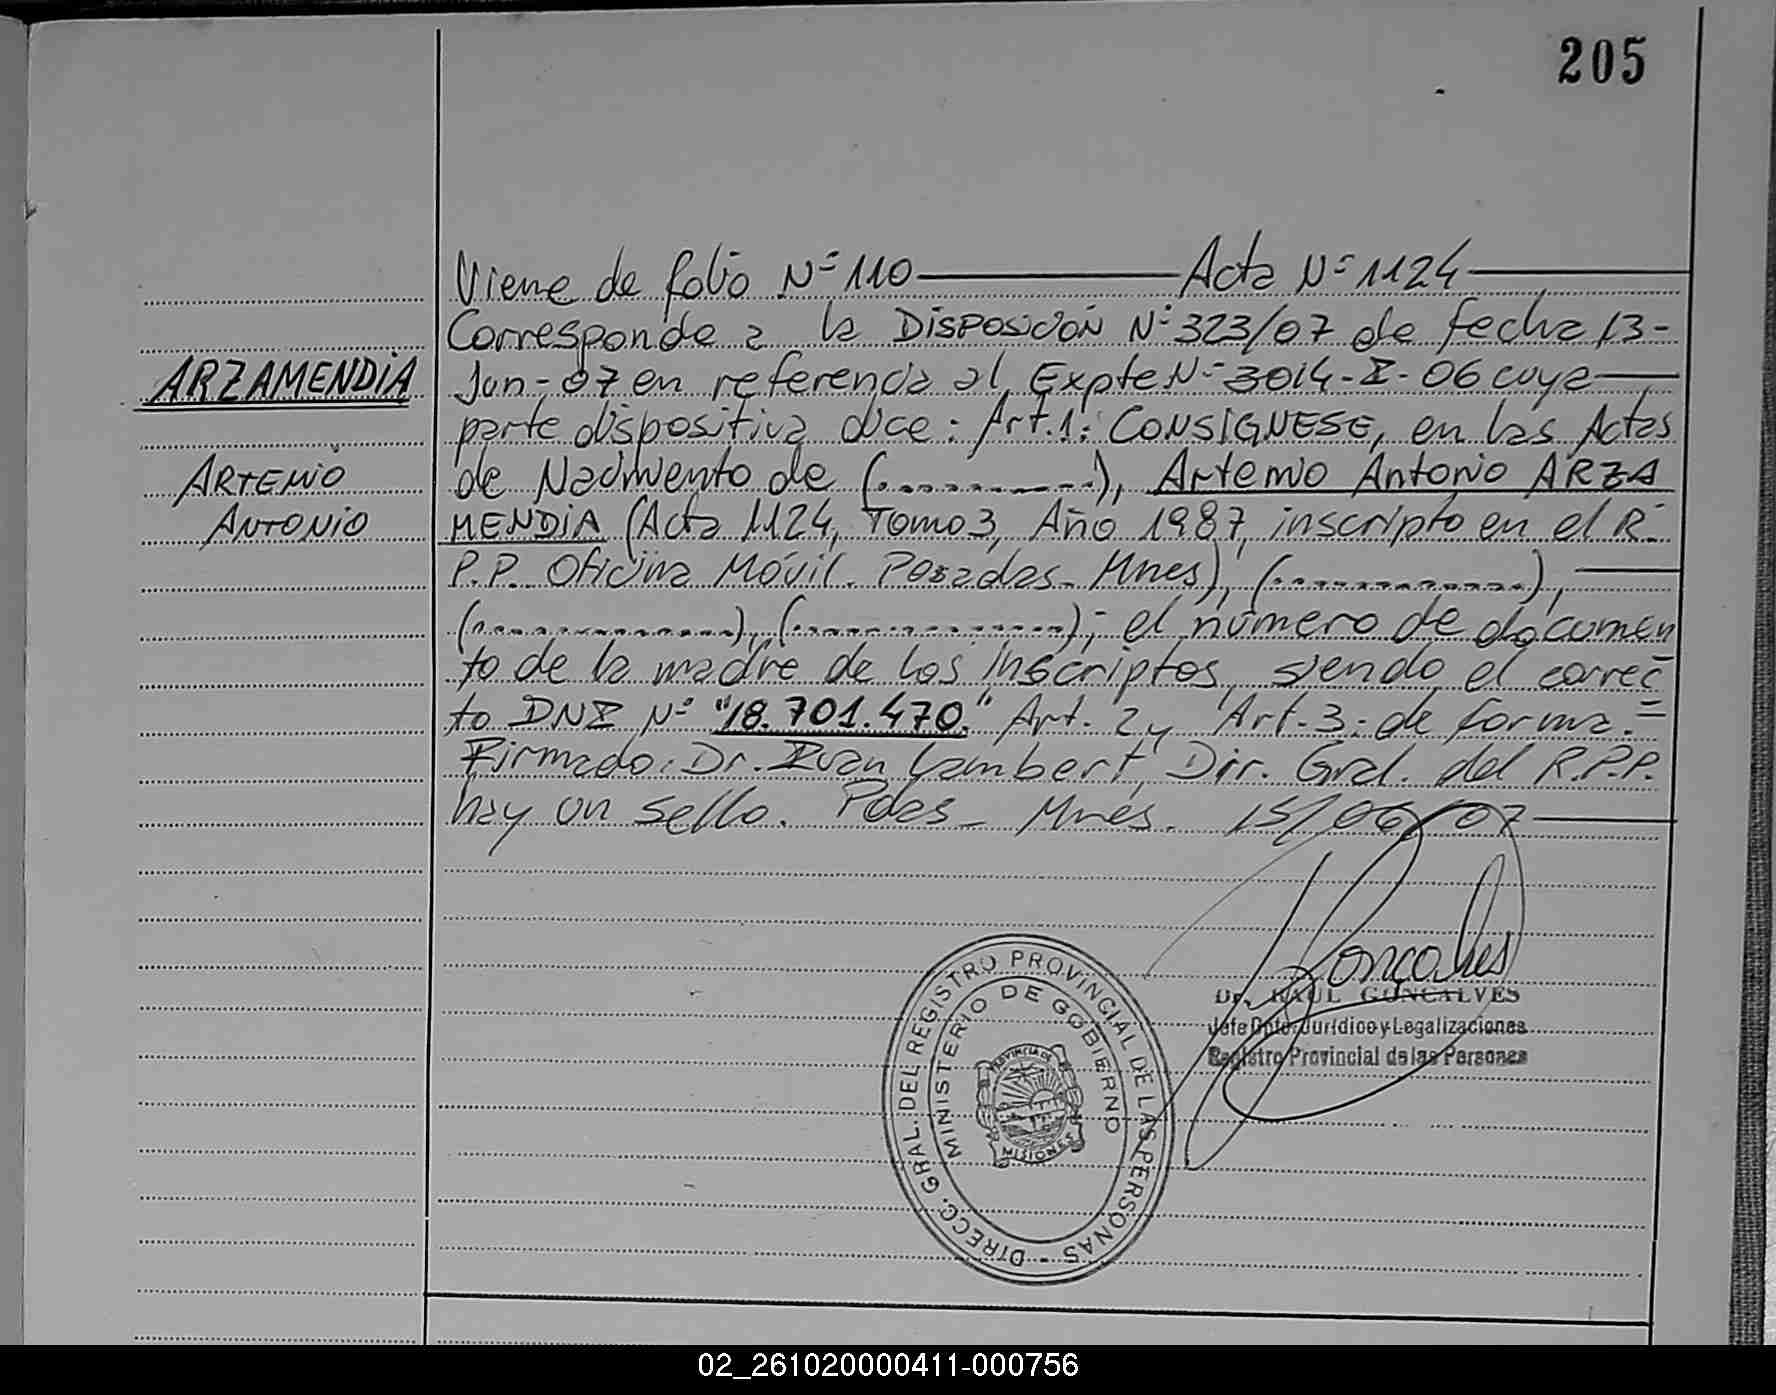 205
Viene de folio Nº 110 Acta Nº 1124
Corresponde a la DISPOSICIÓN Nº 323/07 de fecha 13-
Jun-07 en referencia al Expte Nº 3014-I-06 cuya
parte dispositiva dice: Art.1: CONSIGNESE, en las Actas
de Nacimiento de (............), Artemio Antonio ARZA
MENDIA (Acta 1124, Tomo 3, Año 1987, inscripto en el R.
P.P. Oficina Móvil. Posadas - Mnes), (..............),
(..............), (..............); el número de documen
to de la madre de los inscriptos, siendo el correc
to DNI Nº "18.701.470." Art. 2 y Art. 3: de forma.=
Firmado: Dr. Ivan Lambert, Dir. Gral. del R.P.P.
hay un sello. Pdas - Mnes. 15/06/07
ARZAMENDIA
ARTEMIO
ANTONIO
Gonçalves
Dr. RAUL GONCALVES
Jefe Dpto. Jurídico y Legalizaciones
Registro Provincial de las Personas
DIRECC. GRAL. DEL REGISTRO PROVINCIAL DE LAS PERSONAS
MINISTERIO DE GOBIERNO
PROVINCIA DE
MISIONES
02_261020000411-000756